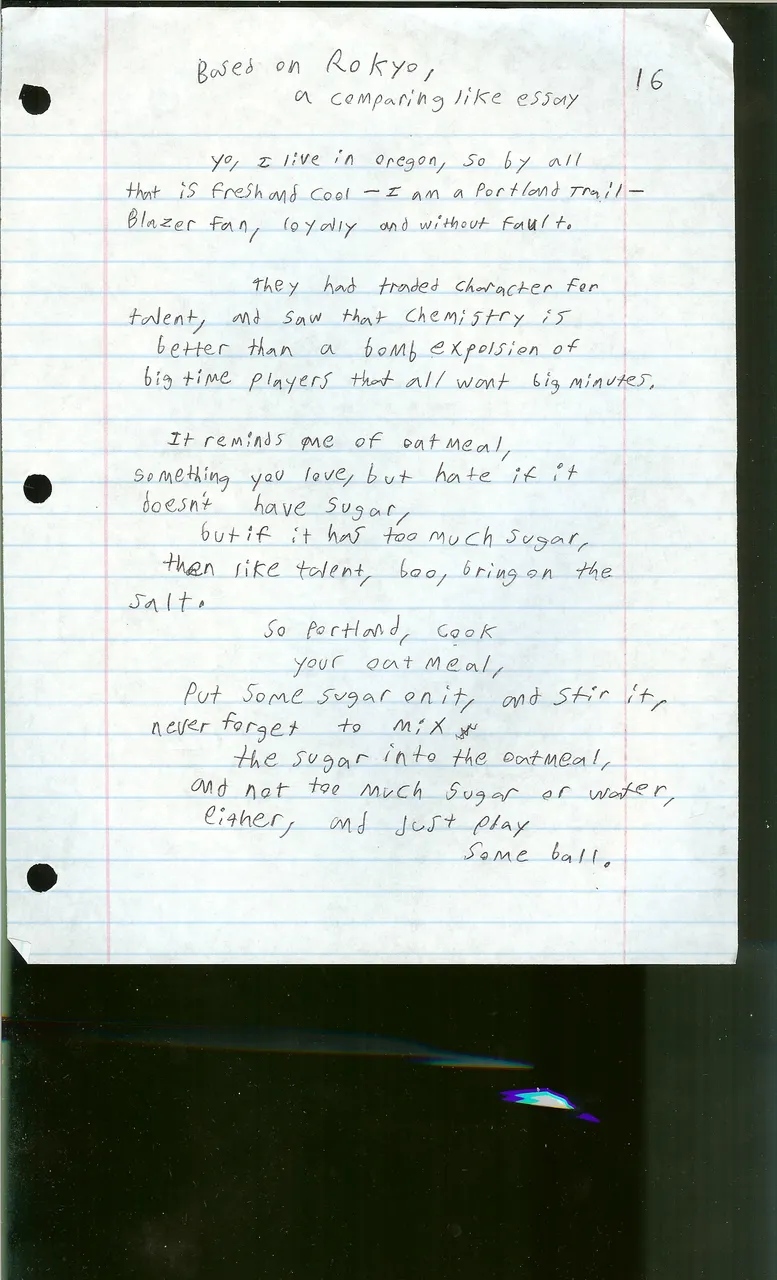 Based on Rokyo,
16
a comparing like essay
yo, I live in oregon, so by all
that is fresh and cool – I am a Portland Trail –
Blazer fan, loyally and without fault.
they had traded character for
talent, and saw that chemistry is
better than a bomb expolsion of
big time players that all want big minutes.
It reminds me of oatmeal,
something you love, but hate if it
doesn't have sugar,
but if it has too much sugar,
then like talent, boo, bring on the
salt.
So Portland, cook
your oatmeal,
Put some sugar on it, and stir it,
never forget to mix
the sugar into the oatmeal,
and not too much sugar or water,
either, and just play
some ball.